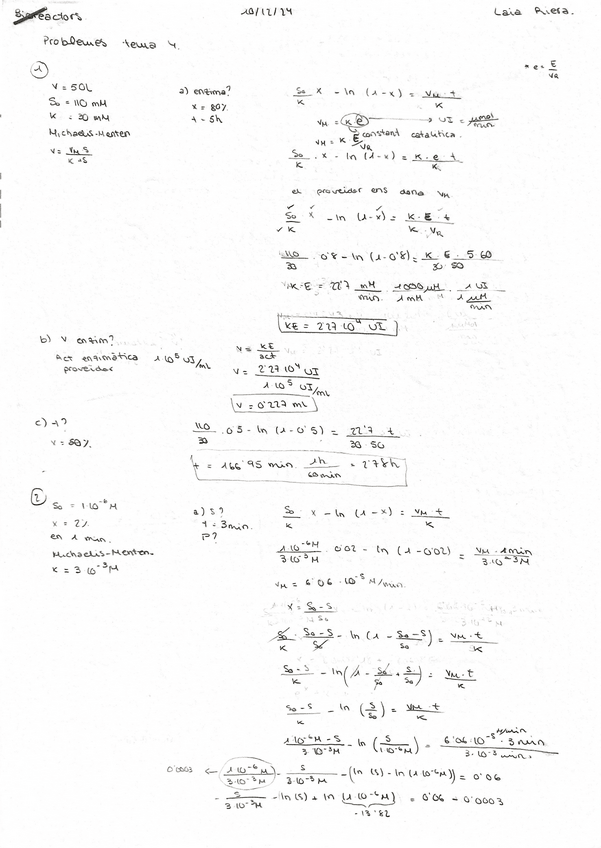 Bioreactors 10/12/24 Laia Riera.
Problemes tema 4.
* e = E/VR
1
V = 50L
S0 = 110 mM
K = 30 mM
Michaelis-Menten
v = vM S / K + S
a) enzima?
x = 80%
t = 5h
S0/K x - ln (1-x) = vM · t / K
vM = K e → UI = μmol/min
vM = K E/VR constant catalítica.
S0/K · x - ln (1-x) = K · e · t / K
el proveïdor ens dona vM
S0/K · x - ln (1-x) = K · E · t / K · VR
110/30 · 0'8 - ln (1-0'8) = K · E · 5·60 / 30 · 50
K·E = 22'7 mM/min · 1000 μM / 1 mM · 1 UI / 1 μM/min
KE = 2'27·10^4 UI
b) V enzim?
Act enzimàtica 1·10^5 UI/mL
proveïdor
V = KE/act
V = 2'27·10^4 UI / 1·10^5 UI/mL
V = 0'227 mL
c) t?
x = 50%.
110/30 · 0'5 - ln (1-0'5) = 22'7 · t / 30 · 50
t = 166'95 min · 1h/60min = 2'78h
2
S0 = 1·10^-6 M
x = 2%
en 1 min.
Michaelis-Menten.
K = 3·10^-3 M
a) S?
t = 3min.
P?
S0/K x - ln (1-x) = vM · t / K
1·10^-6M / 3·10^-3M · 0'02 - ln (1-0'02) = vM · 1min / 3·10^-3M
vM = 6'06·10^-5 M/min.
x = S0-S / S0
S0/K · S0-S / S0 - ln (1 - S0-S / S0) = vM · t / K
S0-S / K - ln (1 - S0/S0 + S/S0) = vM · t / K
S0-S / K - ln (S/S0) = vM · t / K
1·10^-6M - S / 3·10^-3M - ln (S / 1·10^-6M) = 6'06·10^-5 M/min · 3 min / 3·10^-3
0'0003 ← 1·10^-6M / 3·10^-3M - S / 3·10^-3M - (ln (S) - ln (1·10^-6M)) = 0'06
- S / 3·10^-3M - ln (S) + ln (1·10^-6M) = 0'06 - 0'0003
-13'82